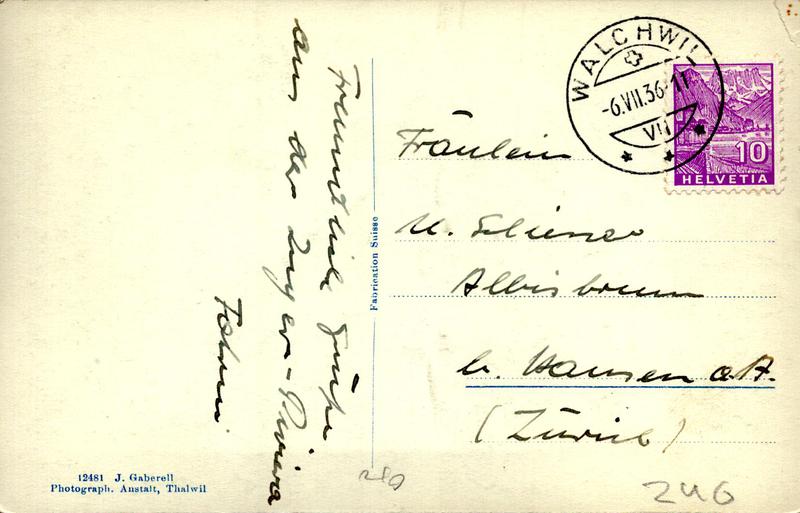 Freundliche Grüsse
aus der Zuger-Riviera
12481 J. Gaberell
Photograph. Anstalt, Thalwil
Fabrication Suisse
WALCHWIL
-6.VII.36-11
VII
10
HELVETIA
Fräulein
Albisbrunn
b. Hausen a.A.
(Zürich)
240